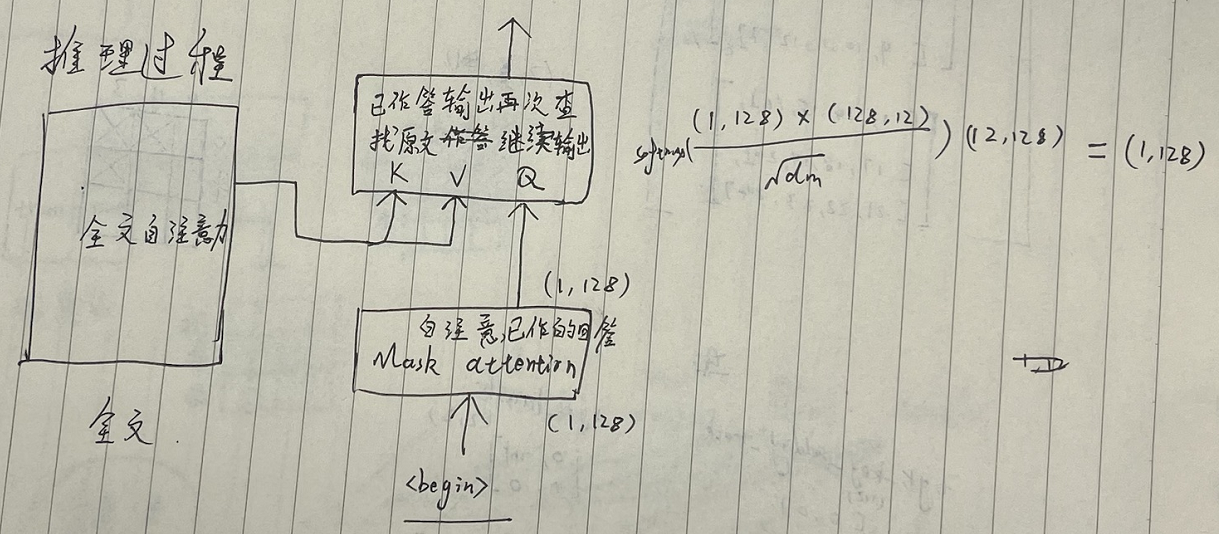 推理过程
已作答输出再次查
找原文作答继续输出
K V Q
softmax( (1,128) × (128,12) / √dm ) (12,128) = (1,128)
全文自注意力
(1,128)
自注意已作的回答
Mask attention
全文
(1,128)
<begin>